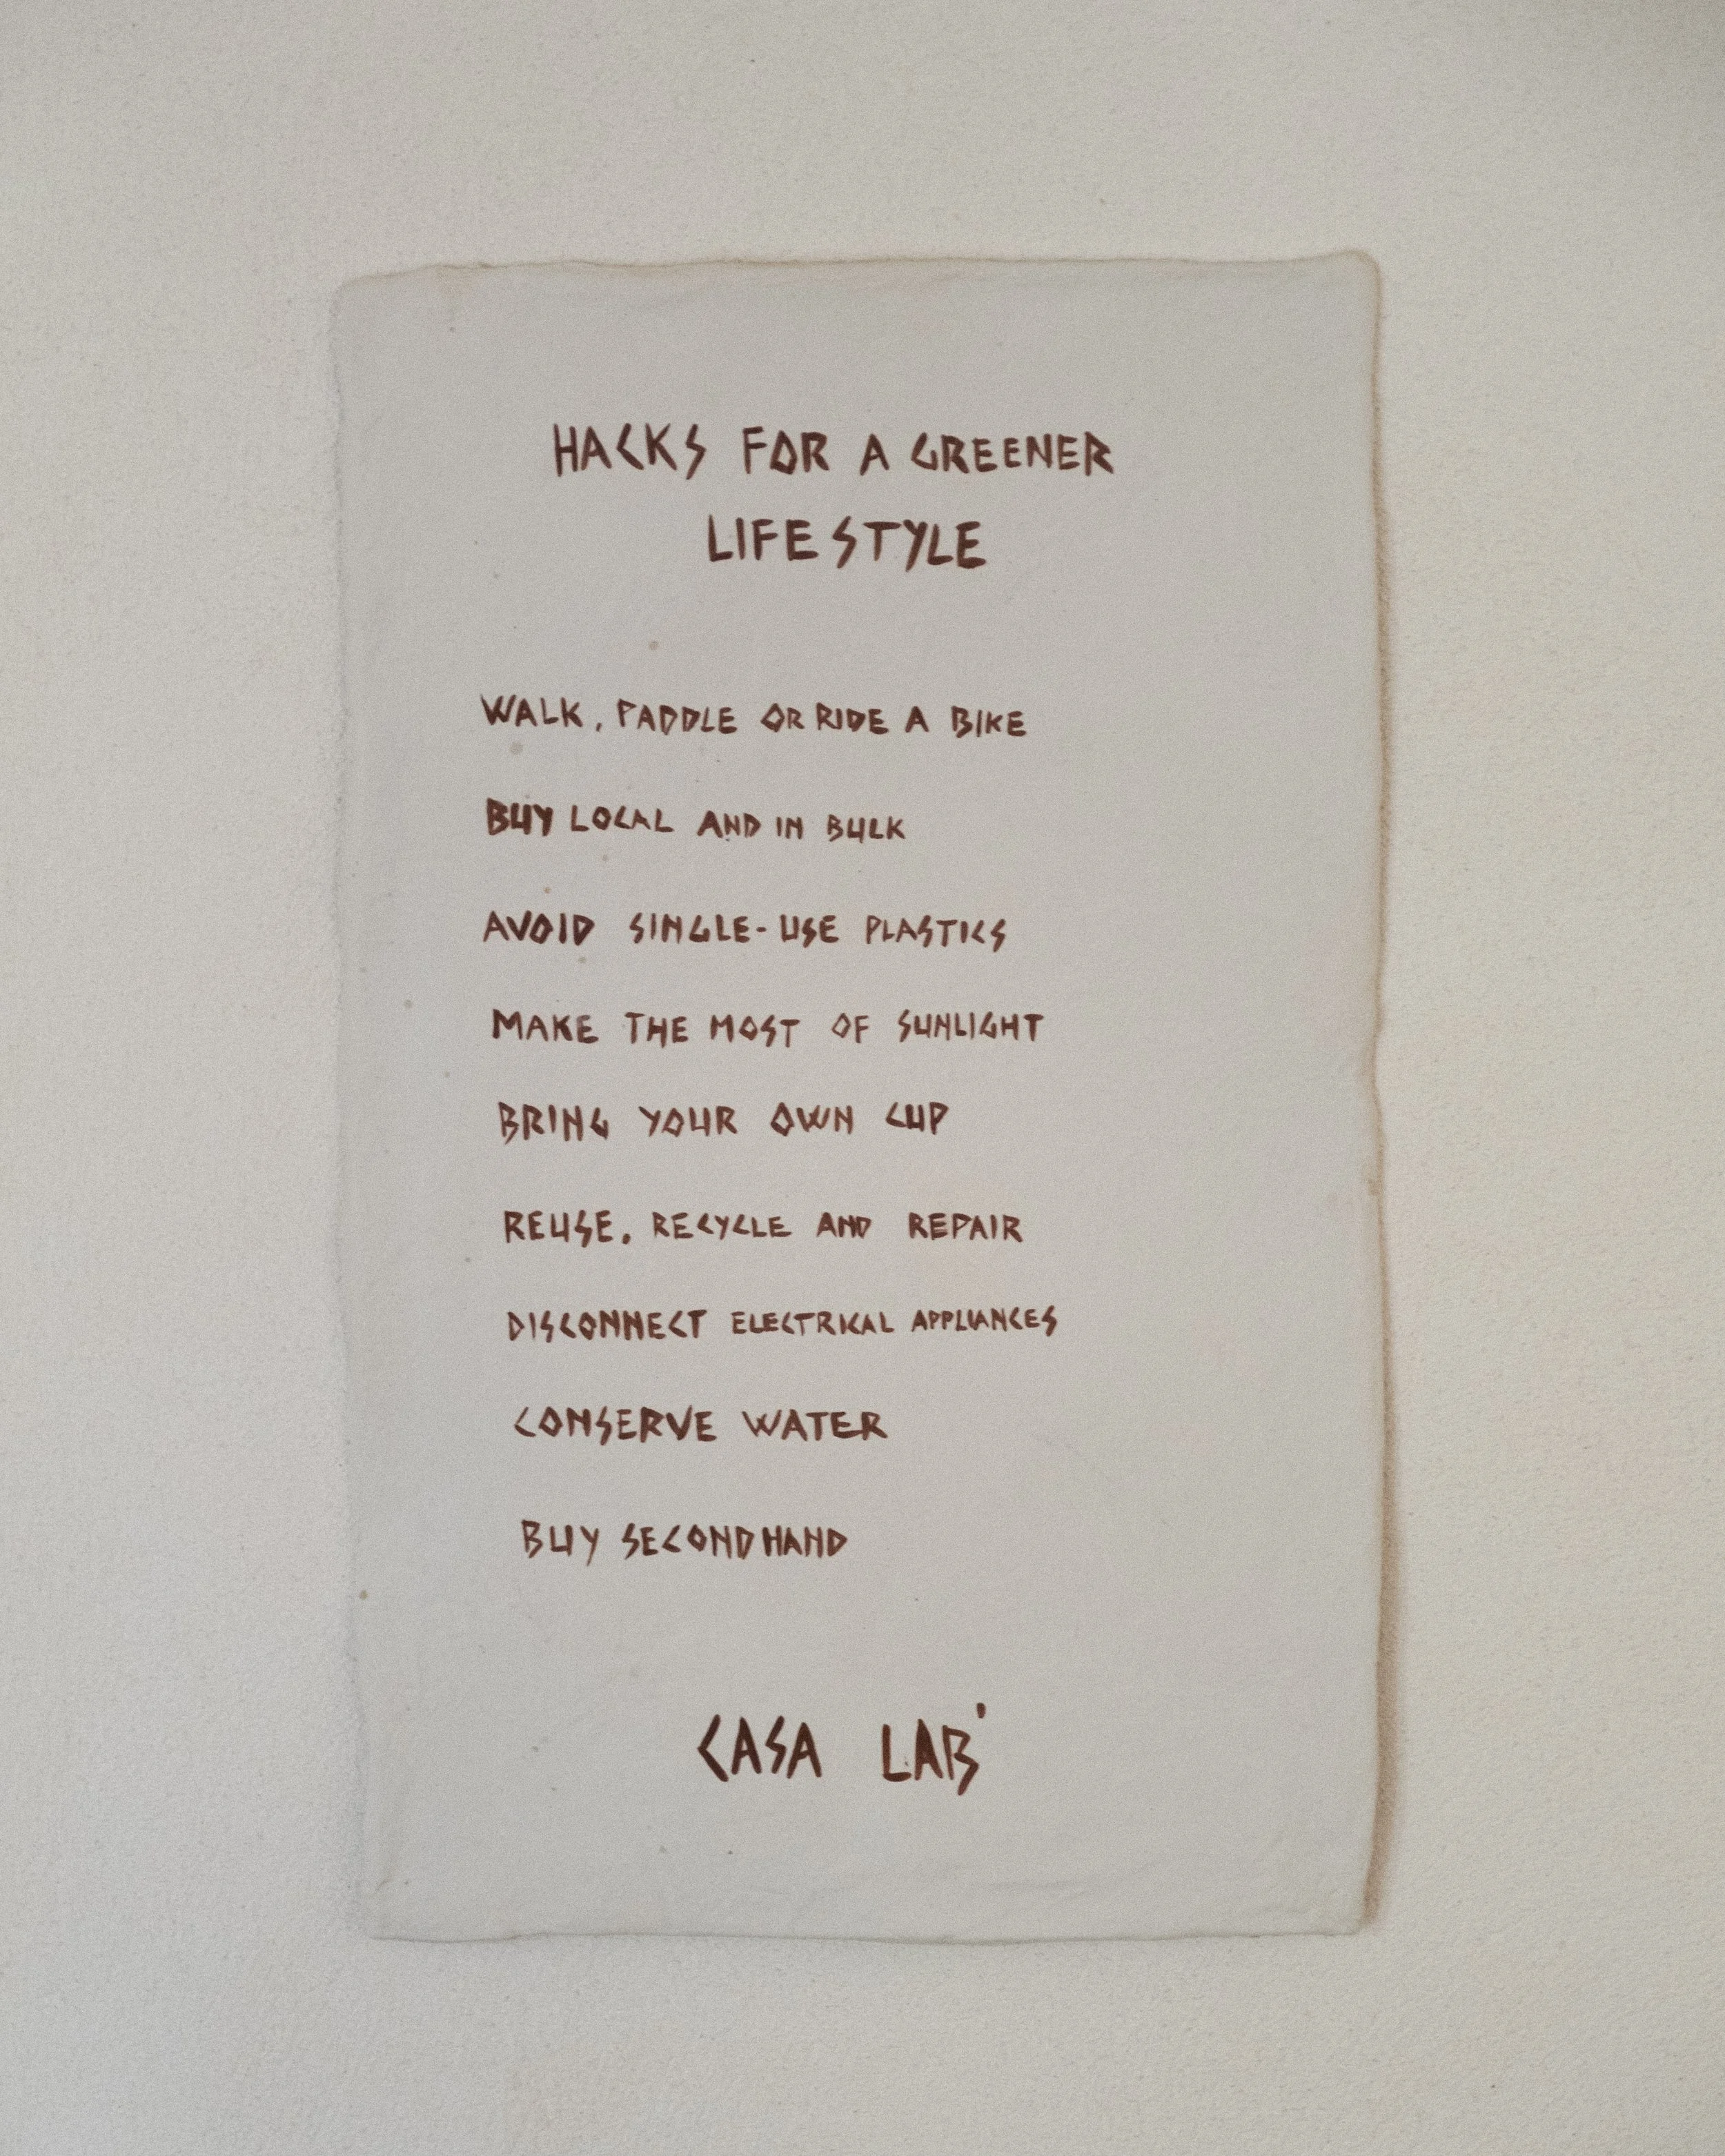 HACKS FOR A GREENER
LIFESTYLE
WALK, PADDLE OR RIDE A BIKE
BUY LOCAL AND IN BULK
AVOID SINGLE-USE PLASTICS
MAKE THE MOST OF SUNLIGHT
BRING YOUR OWN CUP
REUSE, RECYCLE AND REPAIR
DISCONNECT ELECTRICAL APPLIANCES
CONSERVE WATER
BUY SECONDHAND
CASA LAB'